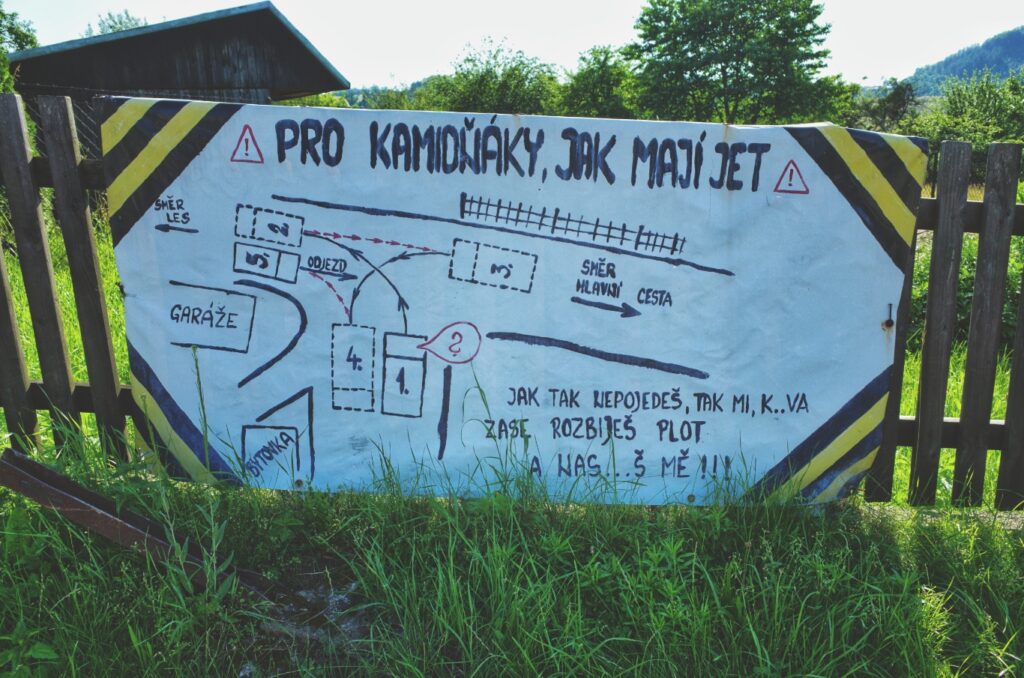 PRO KAMIOŇÁKY, JAK MAJÍ JET
SMĚR
LES
2
5
ODJEZD
3.
SMĚR
HLAVNÍ CESTA
GARÁŽE
4.
1.
?
BYTOVKA
JAK TAK NEPOJEDEŠ, TAK MI, K..VA
ZASE ROZBIJEŠ PLOT
A NAS...Š MĚ !!!